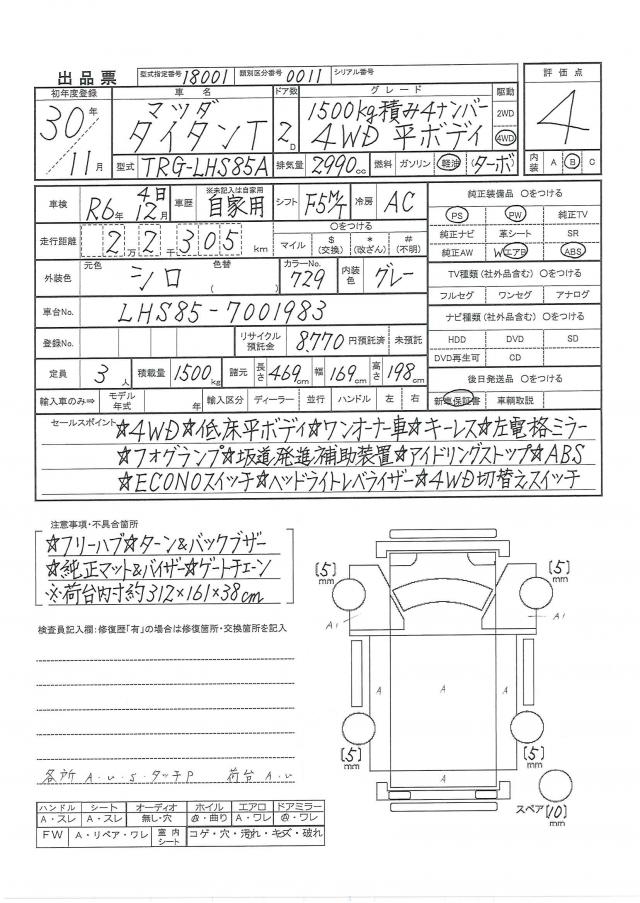 出品票 型式指定番号 18001 類別区分番号 0011 シリアル番号
初年度登録 車名 ドア数 グレード 駆動 評価点
30年 11月 マツダ タイタンT 2D 1500kg積み4ナンバー 4WD 平ボディ 2WD 4WD 4
型式 TRG-LHS85A 排気量 2990cc 燃料 ガソリン 軽油 ターボ 内装 A B C
車検 R6年 12月 4日 車歴 ※未記入は自家用 自家用 シフト F5M/T 冷房 AC 純正装備品 〇をつける
PS PW 純正TV
走行距離 22万千305km 〇をつける マイル $(交換) *(改ざん) #(不明) 純正ナビ 革シート SR
純正AW WエアB ABS
外装色 元色 シロ 色替 ( ) カラーNo. 729 内装色 グレー TV種類(社外品含む) 〇をつける
フルセグ ワンセグ アナログ
車台No. LHS85-7001983 ナビ種類(社外品含む) 〇をつける
登録No. リサイクル預託金 8,770円預託済 未預託 HDD DVD SD
DVD再生可 CD
定員 3人 積載量 1500kg 諸元 長さ 469cm 幅 169cm 高さ 198cm 後日発送品 〇をつける
輸入車のみ⇒ モデル年式 年 輸入区分 ディーラー 並行 ハンドル 左 右 新車保証書 車輌取説
セールスポイント ☆4WD☆低床平ボディ☆ワンオーナー車☆キーレス☆左電格ミラー
☆フォグランプ☆坂道発進補助装置☆アイドリングストップ☆ABS
☆ECONOスイッチ☆ヘッドライトレベライザー☆4WD切替えスイッチ
注意事項・不具合箇所
☆フリーハブ☆ターン&バックブザー
☆純正マット&バイザー☆ゲートチェーン
※荷台内寸約312×161×38cm
検査員記入欄:修復歴「有」の場合は修復箇所・交換箇所を記入
各所 A・U・S・タッチP 荷台 A・U
[5]mm [5]mm
A1 A1
A A A
[5]mm [5]mm
スペア [10]mm
ハンドル シート オーディオ ホイル エアロ ドアミラー
A・スレ A・スレ 無し・穴 @・曲り A・ワレ @・ワレ
FW A・リペア・ワレ 室内シート コゲ・穴・汚れ・キズ・破れ